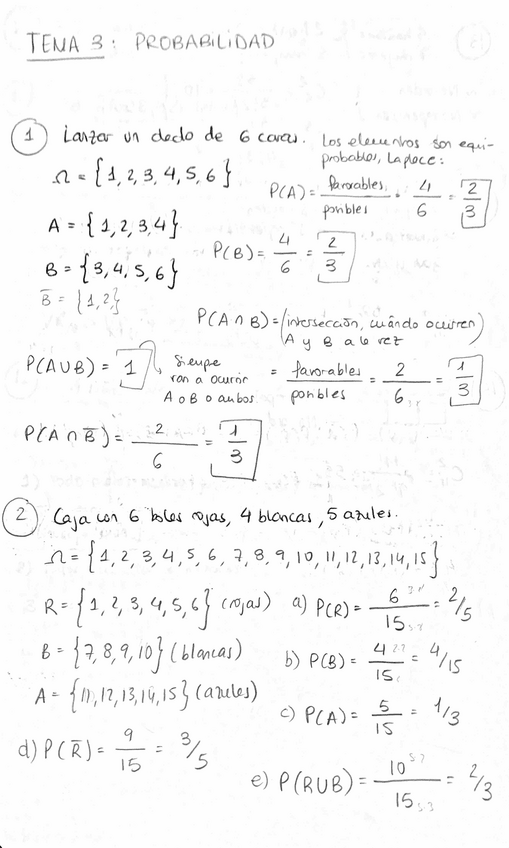 TEMA 3: PROBABILIDAD
1 Lanzar un dado de 6 caras. Los elementos son equi-
probables, Laplace:
Ω = {1, 2, 3, 4, 5, 6}
P(A) = favorables / posibles = 4/6 = 2/3
A = {1, 2, 3, 4}
P(B) = 4/6 = 2/3
B = {3, 4, 5, 6}
B̅ = {1, 2}
P(A ∩ B) = (intersección, cuándo ocurren
A y B a la vez)
P(A∪B) = 1 Siempre
van a ocurrir
A o B o ambos
= favorables / posibles = 2/6 = 1/3
P(A ∩ B̅) = 2/6 = 1/3
2 Caja con 6 bolas rojas, 4 blancas, 5 azules.
Ω = {1, 2, 3, 4, 5, 6, 7, 8, 9, 10, 11, 12, 13, 14, 15}
R = {1, 2, 3, 4, 5, 6} (rojas) a) P(R) = 6/15 = 2/5
B = {7, 8, 9, 10} (blancas)
b) P(B) = 4/15 = 4/15
A = {11, 12, 13, 14, 15} (azules)
c) P(A) = 5/15 = 1/3
d) P(R̅) = 9/15 = 3/5
e) P(R∪B) = 10/15 = 2/3